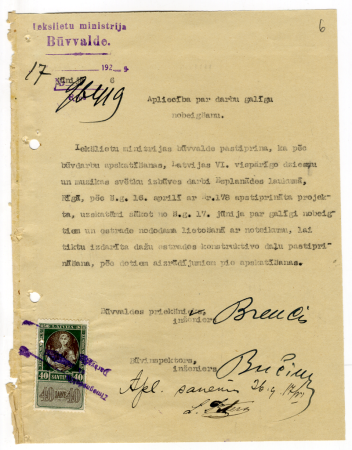 Iekšlietu ministrija
Būvvalde.
6
192
17
6
Apliecība par darbu galīgu
nobeigšanu.
Iekšlietu ministrijas būvvalde pastiprina, ka pēc
būvdarbu apskatīšanas, Latvijas VI. vispārīgo dziesmu
un mūzikas svētku izbūves darbi Esplanādes laukumā,
Rīgā, pēc š.g. 16. aprilī ar №178 apstiprināta projek-
ta, uzskatāmi sākot no š.g. 17. jūnija par galīgi nobeig-
tiem un estrade nododama lietošanā ar noteikumu, lai
tiktu izdarīta dažu estrades konstruktivo daļu pastipri-
nāšana, pēc dotiem aizrādījumiem pie apskatīšanas.
Būvvaldes priekšnieks,
inženiers
Būvinspektors,
inženiers
Apl. saņēmu
LATVIJA
40 SANTIMI 40
40 SANT 40